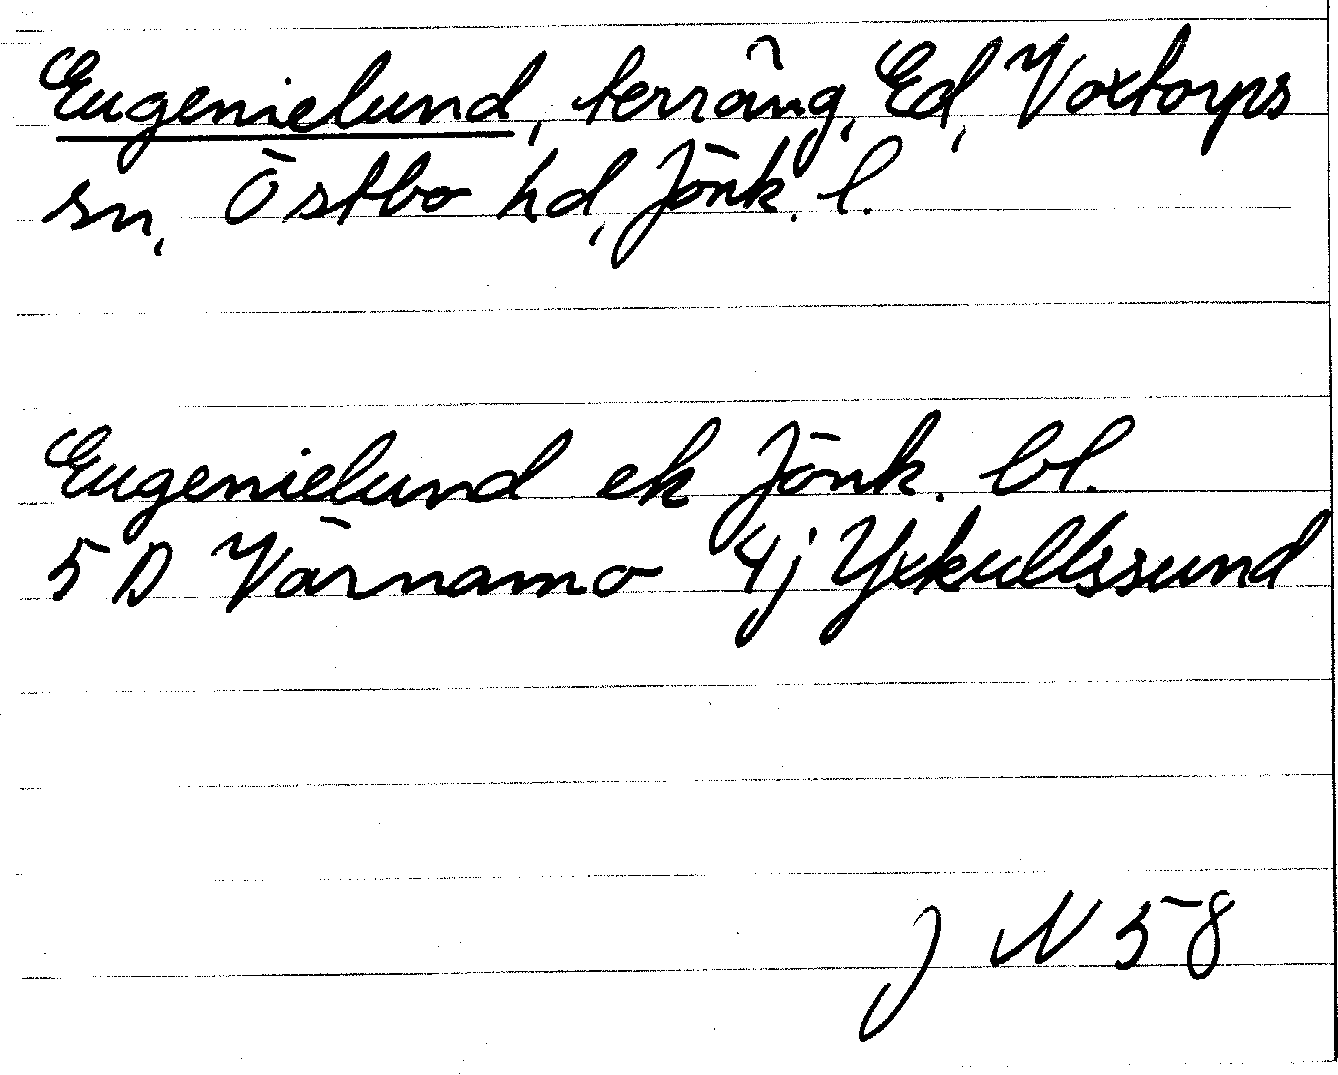 Eugenielund, terräng, Ed, Voxtorps
sn, Östbo hd, Jönk. l.
Eugenielund ek Jönk. bl.
5 D Värnamo 4j Yxkullssund
J N 58